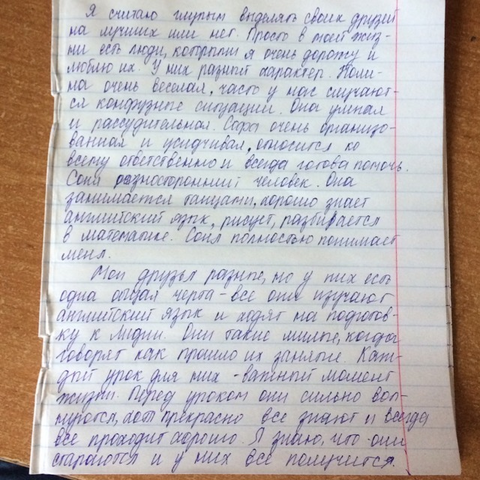 Я считаю глупым выделять своих друзей
на лучших или нет. Просто в моей жиз-
ни есть люди, которыми я очень дорожу и
люблю их. У них разный характер. Поли-
на очень веселая, часто у нас случают-
ся конфузные ситуации. Она умная
и рассудительная. Сара очень организо-
ванная и усидчивая, относится ко
всему ответственно и всегда готова помочь.
Соня разносторонний человек. Она
занимается танцами, хорошо знает
английский язык, рисует, разбирается
в математике. Соня полностью понимает
меня.
Мои друзья разные, но у них есть
одна общая черта - все они изучают
английский язык и ходят на подготов-
ку к Лидии. Они такие милые, когда
говорят как прошло их занятие. Каж-
дый урок для них - важный момент
жизни. Перед уроком они сильно вол-
нуются, хотя прекрасно все знают и всегда
все проходит хорошо. Я знаю, что они
стараются и у них все получится.